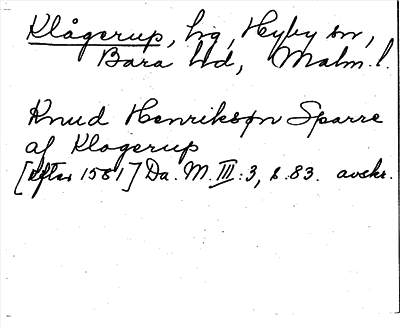 Klågerup, hg, Hyby sn,
Bara hd, Malm. l.
Knud Henriksøn Sparre
af Klogerup
[efter 1581] Da. M. III: 3, s. 83. avskr.